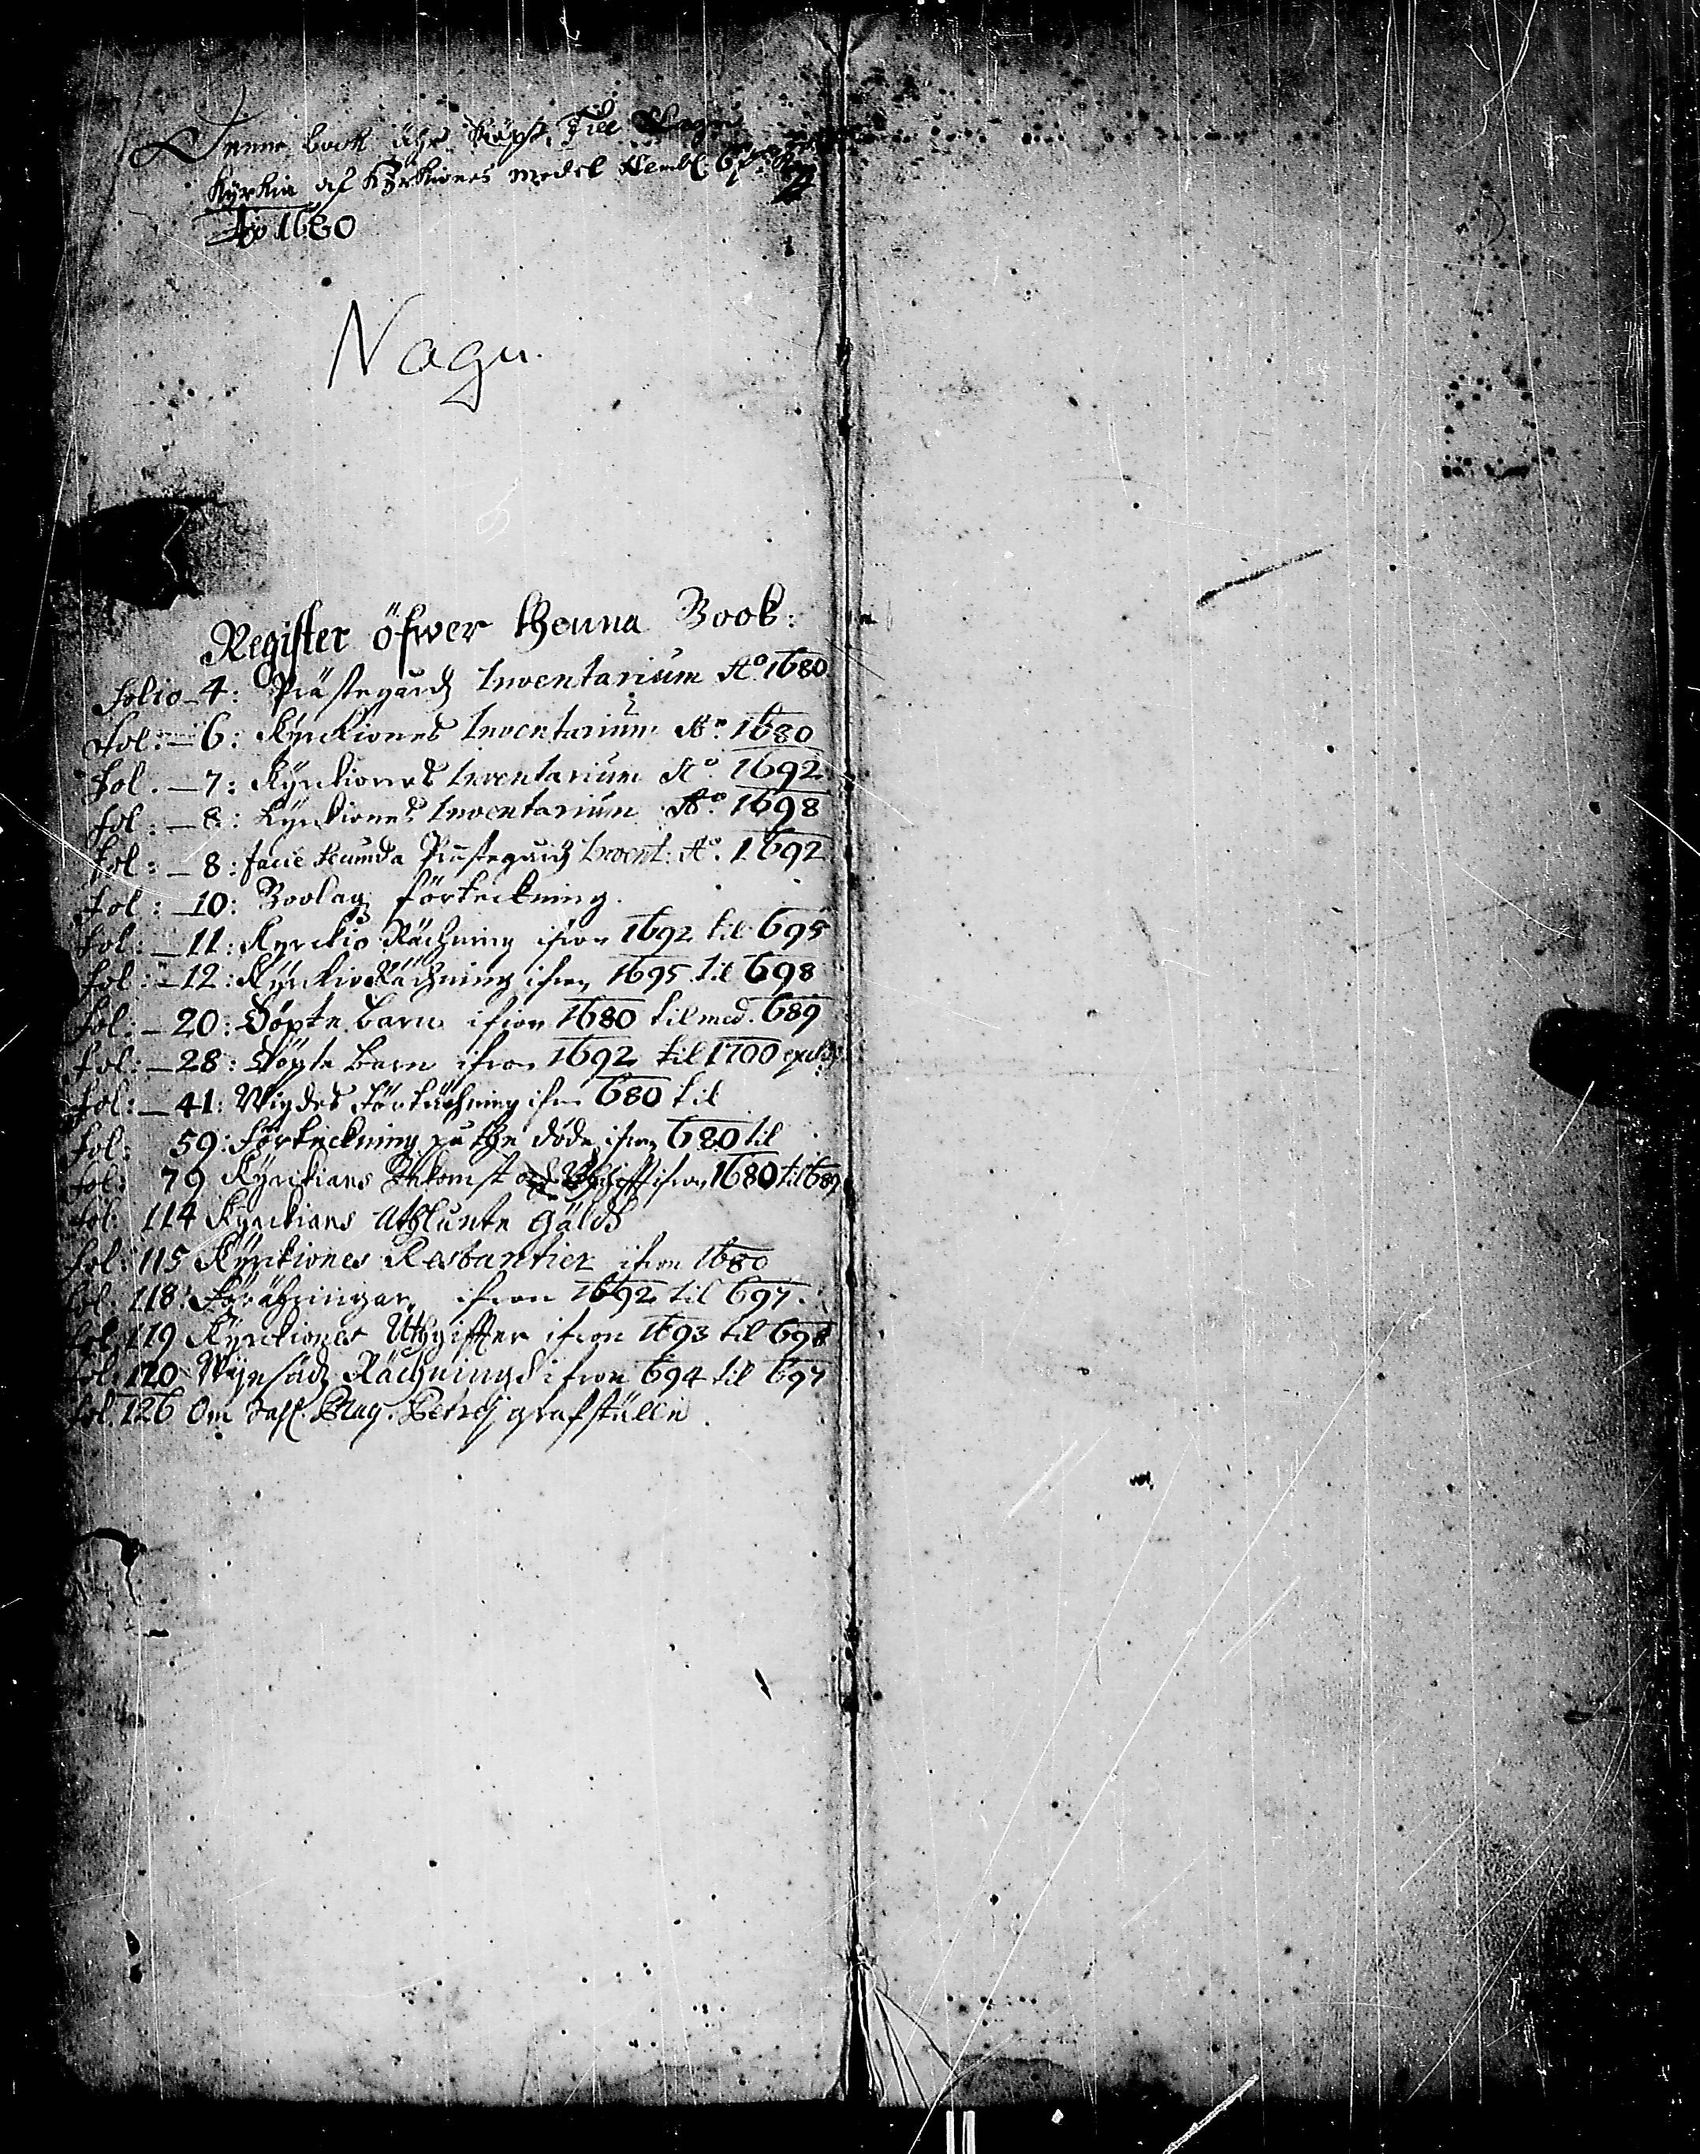 Denne book ähr köpt Till Nagu
Kyrkia af Kyrkiones medel
Ao 1680
Nagu.
Register öfwer thenna Book:
Folio 4: Prästegårdz Inventarium Ao 1680
Fol: 6: Kyrckiones Inventarium Ao 1680
Fol. 7: Kyrckiones Inventarium Ao. 1692
Fol: 8: Kyrckiones Inventarium Ao. 1698
Fol: 8: Facie secunda Prästegårdz Invent: Ao. 1692
Fol: 10: Boolag förteckning.
Fol: 11: Kyrckio Rächning ifrån 1692 til 695
Fol: 12: Kyrckio Rächning ifrån 1695 til 698
Fol: 20: Döpte barn ifrån 1680 til med 689
Fol: 28: Döpte barn ifrån 1692 til 1700
Fol: 41: Wigdes Förtächning ifrån 680 til
Fol: 59: Förteckning på the döde ifrån 680 til
Fol: 79 Kyrckians Inkomst och Uthgifft ifrån 1680 til 689
Fol: 114 Kyrckians Uthlånte Gäldh
Fol: 115 Kyrckiones Restantier ifrån 1680
Fol: 118: Föräringar ifrån 1692 til 697.
Fol: 119 Kyrckiones Uthgiffter ifrån 1693 til 698
Fol: 120 Wijnsädz Rächningh ifrån 694 til 697
Fol. 126 Om Sahl. Mag. Petrij grafställe.